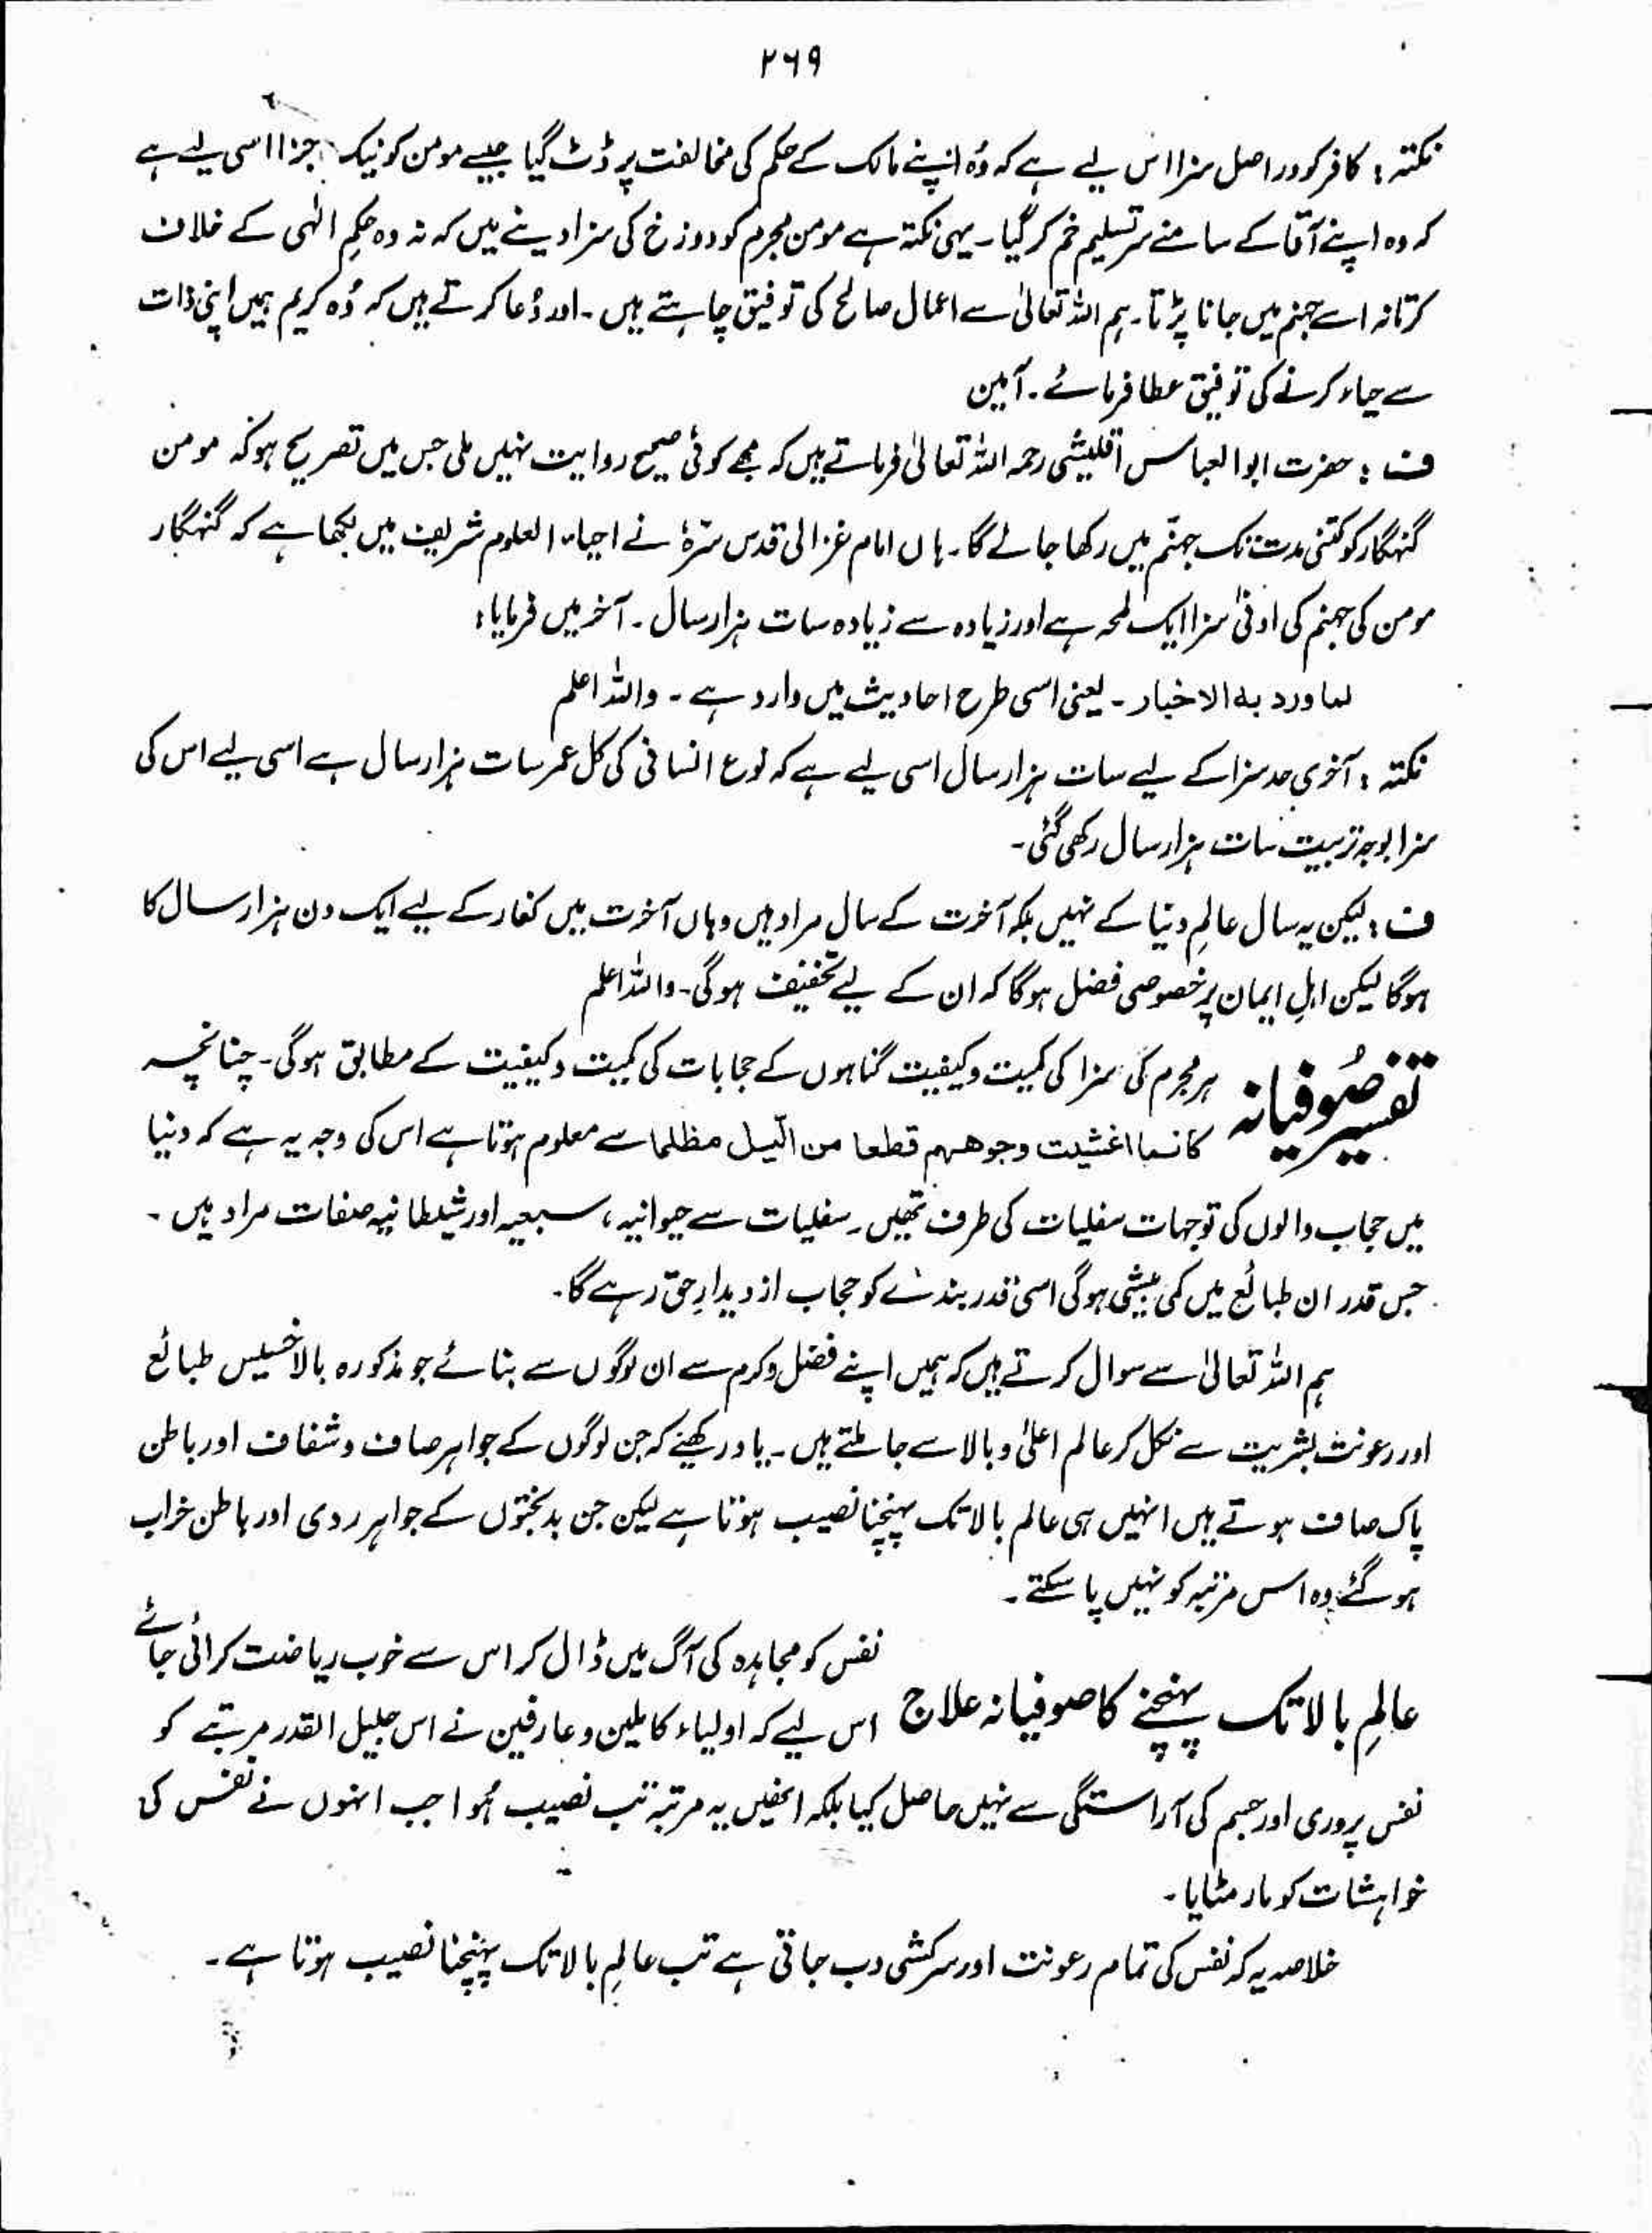 ۲۶۹
نکتہ : کافر کو دراصل سزا اس لیے ہے کہ وُہ اپنے مالک کے حکم کی مخالفت پر ڈٹ گیا جیسے مومن کو نیک جزا اسی لیے ہے
کہ وہ اپنے آقا کے سامنے سرِ تسلیم خم کر گیا۔ یہی نکتہ ہے مومن مجرم کو دوزخ کی سزا دینے میں کہ نہ وہ حکمِ الٰہی کے خلاف
کرتا نہ اسے جہنم میں جانا پڑتا۔ ہم اللہ تعالیٰ سے اعمال صالح کی توفیق چاہتے ہیں۔ اور دُعا کرتے ہیں کہ وُہ کریم ہمیں اپنی ذات
سے حیاء کرنے کی توفیق عطا فرمائے۔ آمین
ف : حضرت ابوالعباس اقلیشی رحمہ اللہ تعالیٰ فرماتے ہیں کہ مجھے کوئی صحیح روایت نہیں ملی جس میں تصریح ہو کہ مومن
گنہگار کو کتنی مدت تک جہنّم میں رکھا جائے گا۔ ہاں امام غزالی قدس سترہٗ نے احیاء العلوم شریف میں لکھا ہے کہ گنہگار
مومن کی جہنم کی ادنیٰ سزا ایک لمحہ ہے اور زیادہ سے زیادہ سات ہزار سال۔ آخر میں فرمایا :
لما ورد به الاخبار۔ یعنی اسی طرح احادیث میں وارد ہے۔ واللہ اعلم
نکتہ : آخری حد سزا کے لیے سات ہزار سال اسی لیے ہے کہ نوع انسانی کی کل عمر سات ہزار سال ہے اسی لیے اس کی
سزا بوجہ تربیت سات ہزار سال رکھی گئی۔
ف : لیکن یہ سال عالمِ دنیا کے نہیں بلکہ آخرت کے سال مراد ہیں وہاں آخرت میں کفار کے لیے ایک دن ہزار سال کا
ہوگا لیکن اہلِ ایمان پر خصوصی فضل ہوگا کہ ان کے لیے تخفیف ہوگی۔ واللہ اعلم
تفسیر صُوفیانہ ہر مجرم کی سزا کی کمیت و کیفیت گناہوں کے حجابات کی کمیت و کیفیت کے مطابق ہوگی۔ چنانچہ
کانما اغشیت وجوههم قطعا من الّیل مظلما سے معلوم ہوتا ہے اس کی وجہ یہ ہے کہ دنیا
میں حجاب والوں کی توجہات سفلیات کی طرف تھیں۔ سفلیات سے حیوانیہ، سبعیہ اور شیطانیہ صفات مراد ہیں۔
جس قدر ان طبائع میں کمی بیشی ہوگی اسی قدر بندے کو حجاب از دیدارِ حق رہے گا۔
ہم اللہ تعالیٰ سے سوال کرتے ہیں کہ ہمیں اپنے فضل و کرم سے ان لوگوں سے بنائے جو مذکورہ بالا خسیس طبائع
اور رعونت بشریت سے نکل کر عالم اعلیٰ و بالا سے جا ملتے ہیں۔ یاد رکھیے کہ جن لوگوں کے جواہر صاف و شفاف اور باطن
پاک صاف ہوتے ہیں انہیں ہی عالم بالا تک پہنچنا نصیب ہوتا ہے لیکن جن بدبختوں کے جواہر ردی اور باطن خراب
ہو گئے وہ اس مرتبہ کو نہیں پا سکتے۔
نفس کو مجاہدہ کی آگ میں ڈال کر اس سے خوب ریاضت کرائی جائے
عالمِ بالا تک پہنچنے کا صوفیانہ علاج اس لیے کہ اولیاء کاملین و عارفین نے اس جلیل القدر مرتبے کو
نفس پروری اور جسم کی آراستگی سے نہیں حاصل کیا بلکہ انھیں یہ مرتبہ تب نصیب ہُوا جب انہوں نے نفس کی
خواہشات کو مار مٹایا۔
خلاصہ یہ کہ نفس کی تمام رعونت اور سرکشی دب جاتی ہے تب عالمِ بالا تک پہنچنا نصیب ہوتا ہے۔